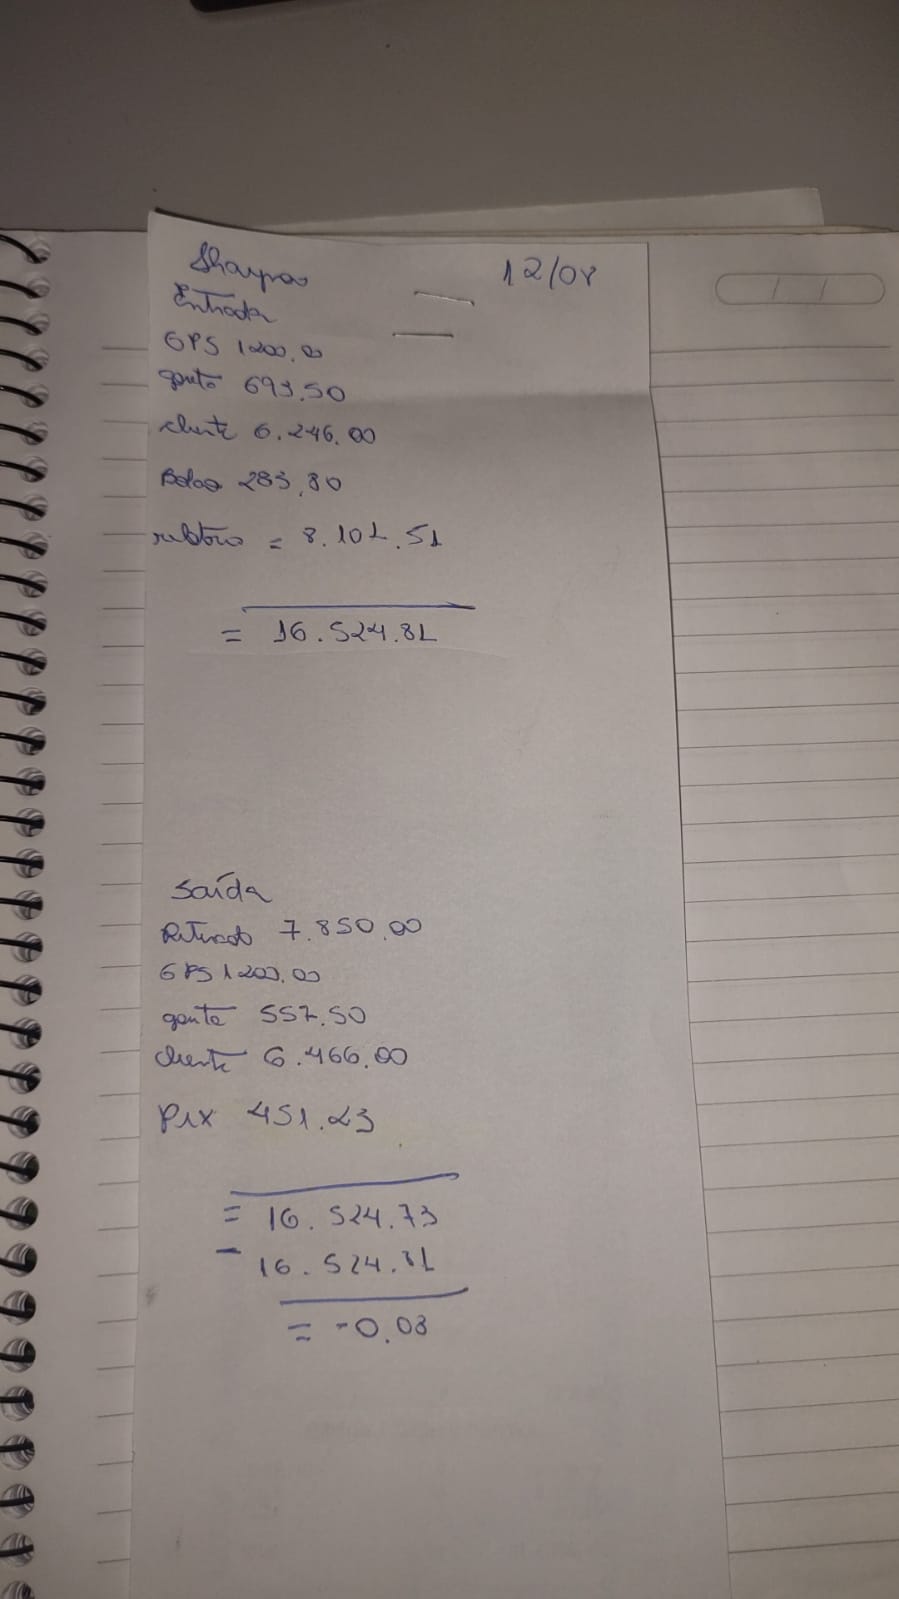 Sharpas 12/08
Entrada
GPS 1200,00
gaveta 693.50
cliente 6.246.00
Bolao 283,80
relatorio = 8.101.51
= 16.524.81
Saída
Retirado 7.850,00
GPS 1200,00
gaveta 557.50
cliente 6.466,00
Pix 451.23
= 16.524.73
- 16.524.81
= -0,08